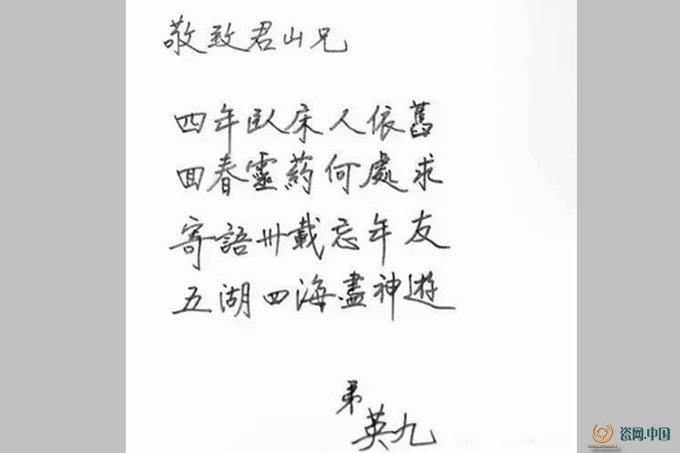 敬致君山兄
四年臥床人依舊
回春靈葯何處求
寄語卅載忘年友
五湖四海盡神遊
弟
英九
瓷网.中国